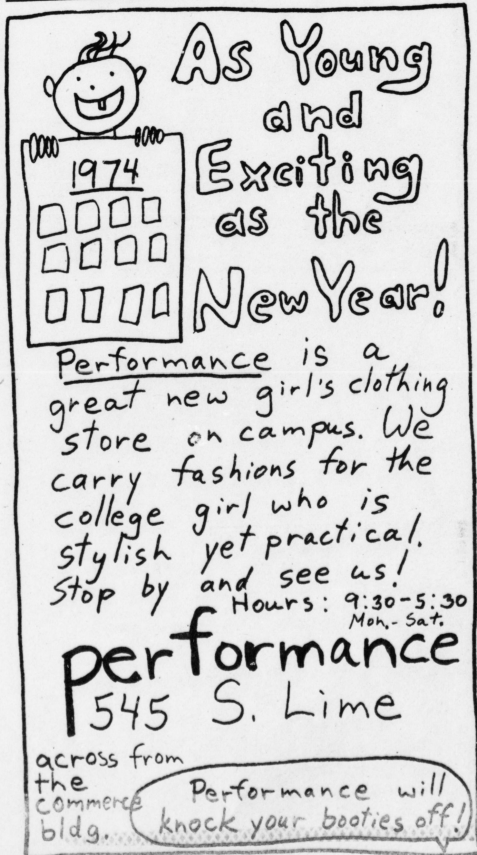 As Young
and
Exciting
as the
New Year!
1974
Performance is a
great new girl's clothing
store on campus. We
carry fashions for the
college girl who is
stylish yet practical.
Stop by and see us!
Hours: 9:30-5:30
Mon.- Sat.
performance
545 S. Lime
across from
the
commerce
bldg.
Performance will
knock your booties off!